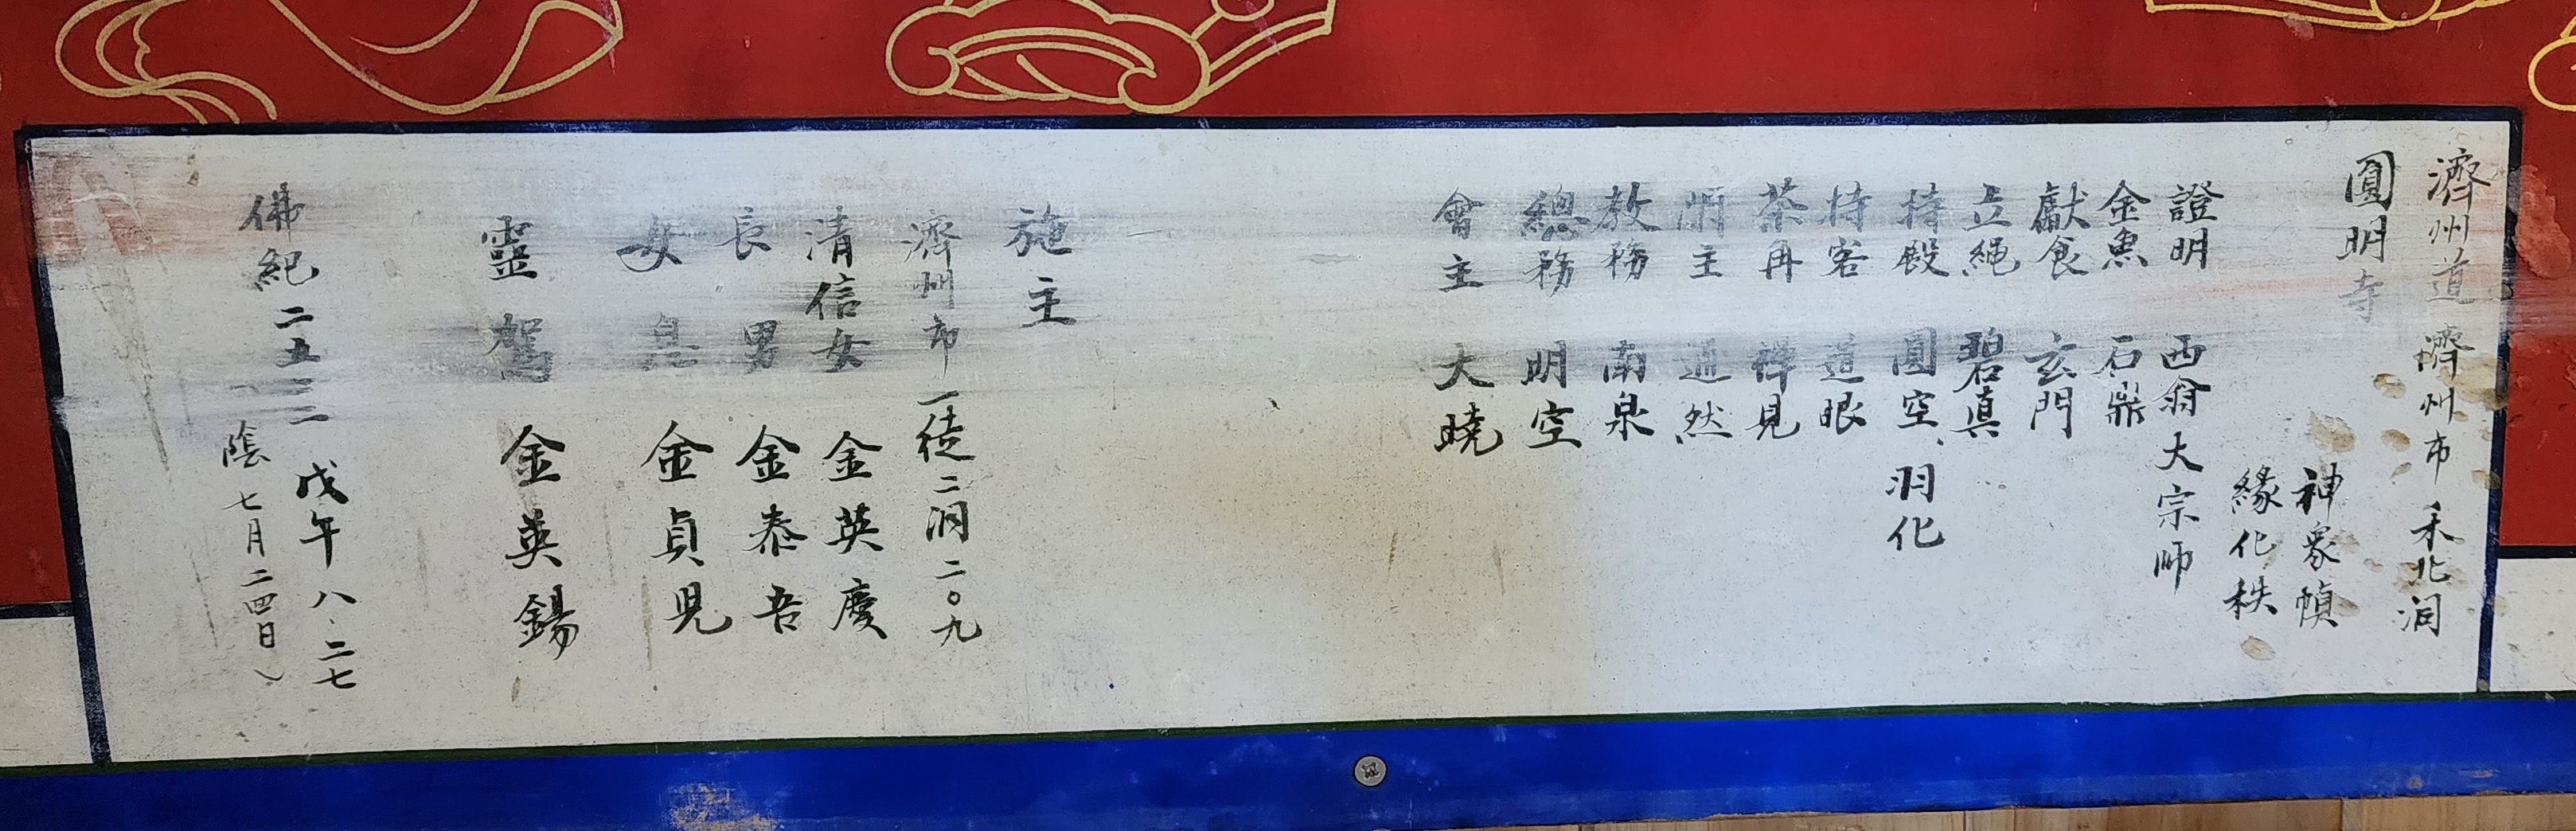 濟州道 濟州市 禾北洞
圓明寺
神衆幀
緣化秩
證明 西翁大宗師
金魚 石鼎
獻食 玄門
立繩 碧眞
持殿 圓空、羽化
持客 道眼
茶再 禪見
明主 通然
敎務 南泉
總務 明空
會主 大曉
施主
濟州市 一徒二洞 二〇九
清信女 金英慶
長男 金泰吾
女息 金貞見
靈駕 金英鍚
佛紀二五二二 戊午 八.二七
（陰 七月二四日）